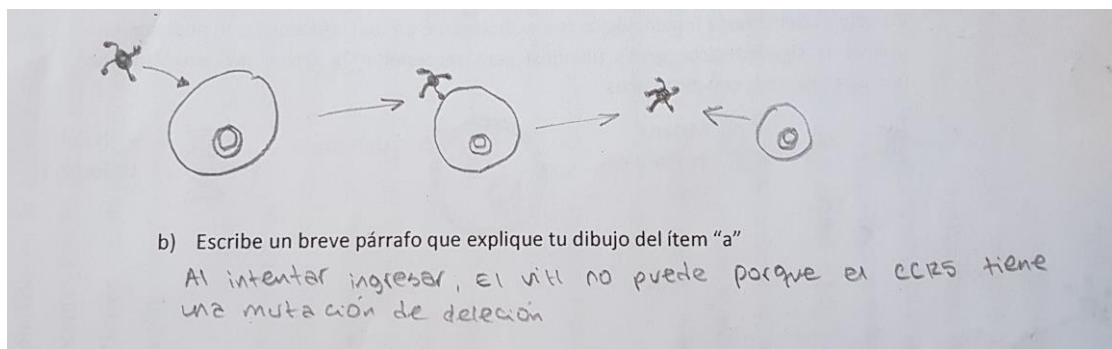 b) Escribe un breve párrafo que explique tu dibujo del ítem “a”
Al intentar ingresar, El vitl no puede porque el CCR5 tiene
una mutación de deleción